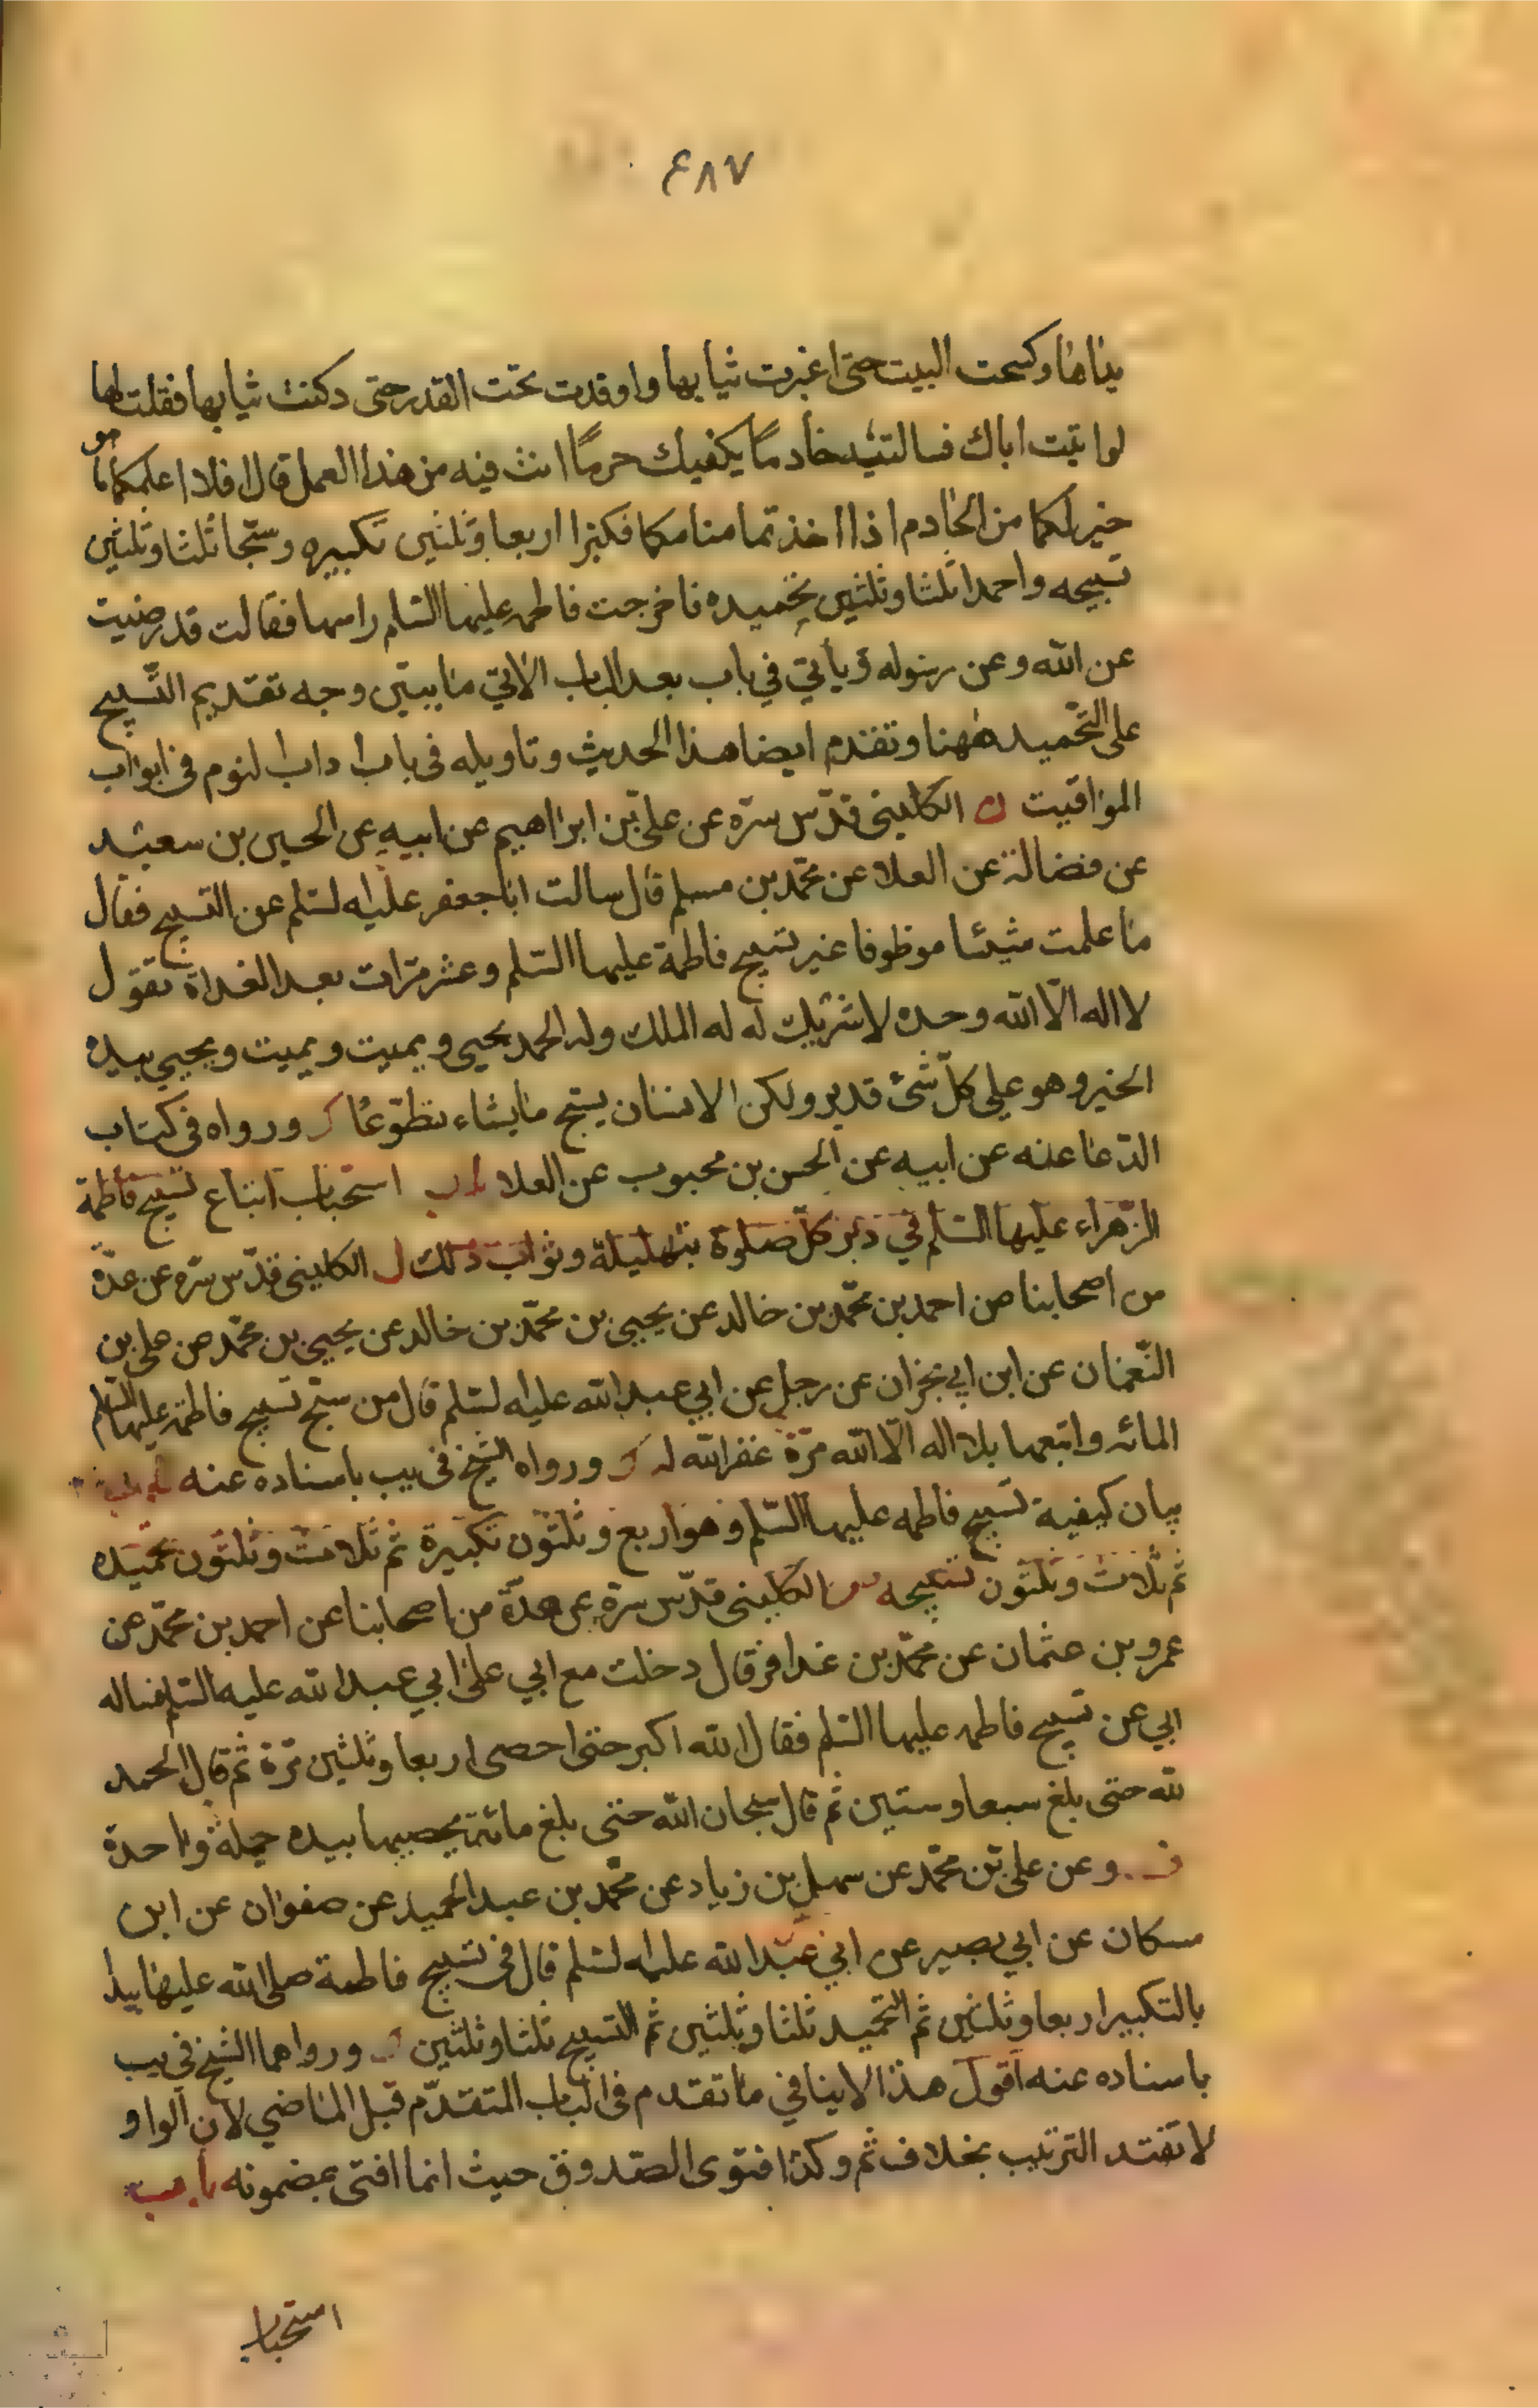 ٤٨٧
يداها وكسحت البيت حتى اغبرت ثيابها واوقدت تحت القدر حتى دكنت ثيابها فقلت لها
لو اتيت اباك فسالتيه خادما يكفيك حر ما انت فيه من هذا العمل قال افلا اعلمكما ما هو
خير لكما من الخادم اذا اخذتما منامكما فكبرا اربعا وثلثين تكبيره وسبّحا ثلثا وثلثين
تسبيحه واحمدا ثلثا وثلثين تحميده فاخرجت فاطمه عليها السّلم راسها فقالت قد رضيت
عن الله وعن رسوله ويأتي في باب بعد الباب الاتي ما يبيّن وجه تقديم التّسبيح
على التّحميد ههنا وتقدم ايضا هذا الحديث وتاويله فى باب اداب النوم فى ابواب
المواقيت الكلينى قدّس سرّه عن علىّ بن ابراهيم عن ابيه عن الحسين بن سعيد
عن فضالة عن العلا عن محمّد بن مسلم قال سالت ابا جعفر عليه السّلم عن التسبيح فقال
ما علمت شيئا موظوفا غير تسبيح فاطمة عليها السّلم وعشر مرّات بعد الغداة تقول
لا اله الّا الله وحده لا شريك له له الملك وله الحمد يحيى ويميت ويميت ويحيي بيده
الخير وهو على كلّ شئ قدير ولكن الانسان يسبّح ما يشاء تطوّعًا ورواه فى كتاب
الدّعا عنه عن ابيه عن الحسن بن محبوب عن العلا باب استحباب اتباع تسبيح فاطمة
الزّهراء عليها السّلم في دبر كلّ صلوة بتهليلة وثواب ذلك الكلينى قدّس سرّه عن عدّة
من اصحابنا عن احمد بن محمّد بن خالد عن يحيى بن محمّد بن خالد عن يحيى بن محمّد عن على بن
النّعمان عن ابن ابي نجران عن رجل عن ابي عبد الله عليه السّلم قال من سبّح تسبيح فاطمه عليها السّلم
المائه واتبعها بلا اله الّا الله مرّة غفر الله له ورواه الشيخ فى يب باسناده عنه باب
بيان كيفية تسبيح فاطمه عليها السّلم وهو اربع وثلثون تكبيرة ثم ثلاث وثلثون تحميده
ثم ثلاث وثلثون تسبيحه الكلينى قدّس سرّه عن عدّة من اصحابنا عن احمد بن محمّد عن
عمرو بن عثمان عن محمّد بن عذافر قال دخلت مع ابي على ابي عبد الله عليه السّلم فساله
ابي عن تسبيح فاطمه عليها السّلم فقال الله اكبر حتى احصى اربعا وثلثين مرّة ثم قال الحمد
لله حتى بلغ سبعا وستين ثم قال سبحان الله حتى بلغ مائة يحصيها بيده جملة واحدة
وعن علىّ بن محمّد عن سهل بن زياد عن محمّد بن عبد الحميد عن صفوان عن ابن
مسكان عن ابي بصير عن ابي عبد الله عليه السّلم قال فى تسبيح فاطمة صلى الله عليها يبدا
بالتكبير اربعا وثلثين ثم التحميد ثلثا وثلثين ثم التسبيح ثلثا وثلثين ورواهما الشيخ في يب
باسناده عنه اقول هذا لا ينافي ما تقدم فى الباب المتقدّم قبل الماضي لان الواو
لا تفيد الترتيب بخلاف ثم وكذا فتوى الصّدوق حيث انما افتى بمضمونه باب
استحباب